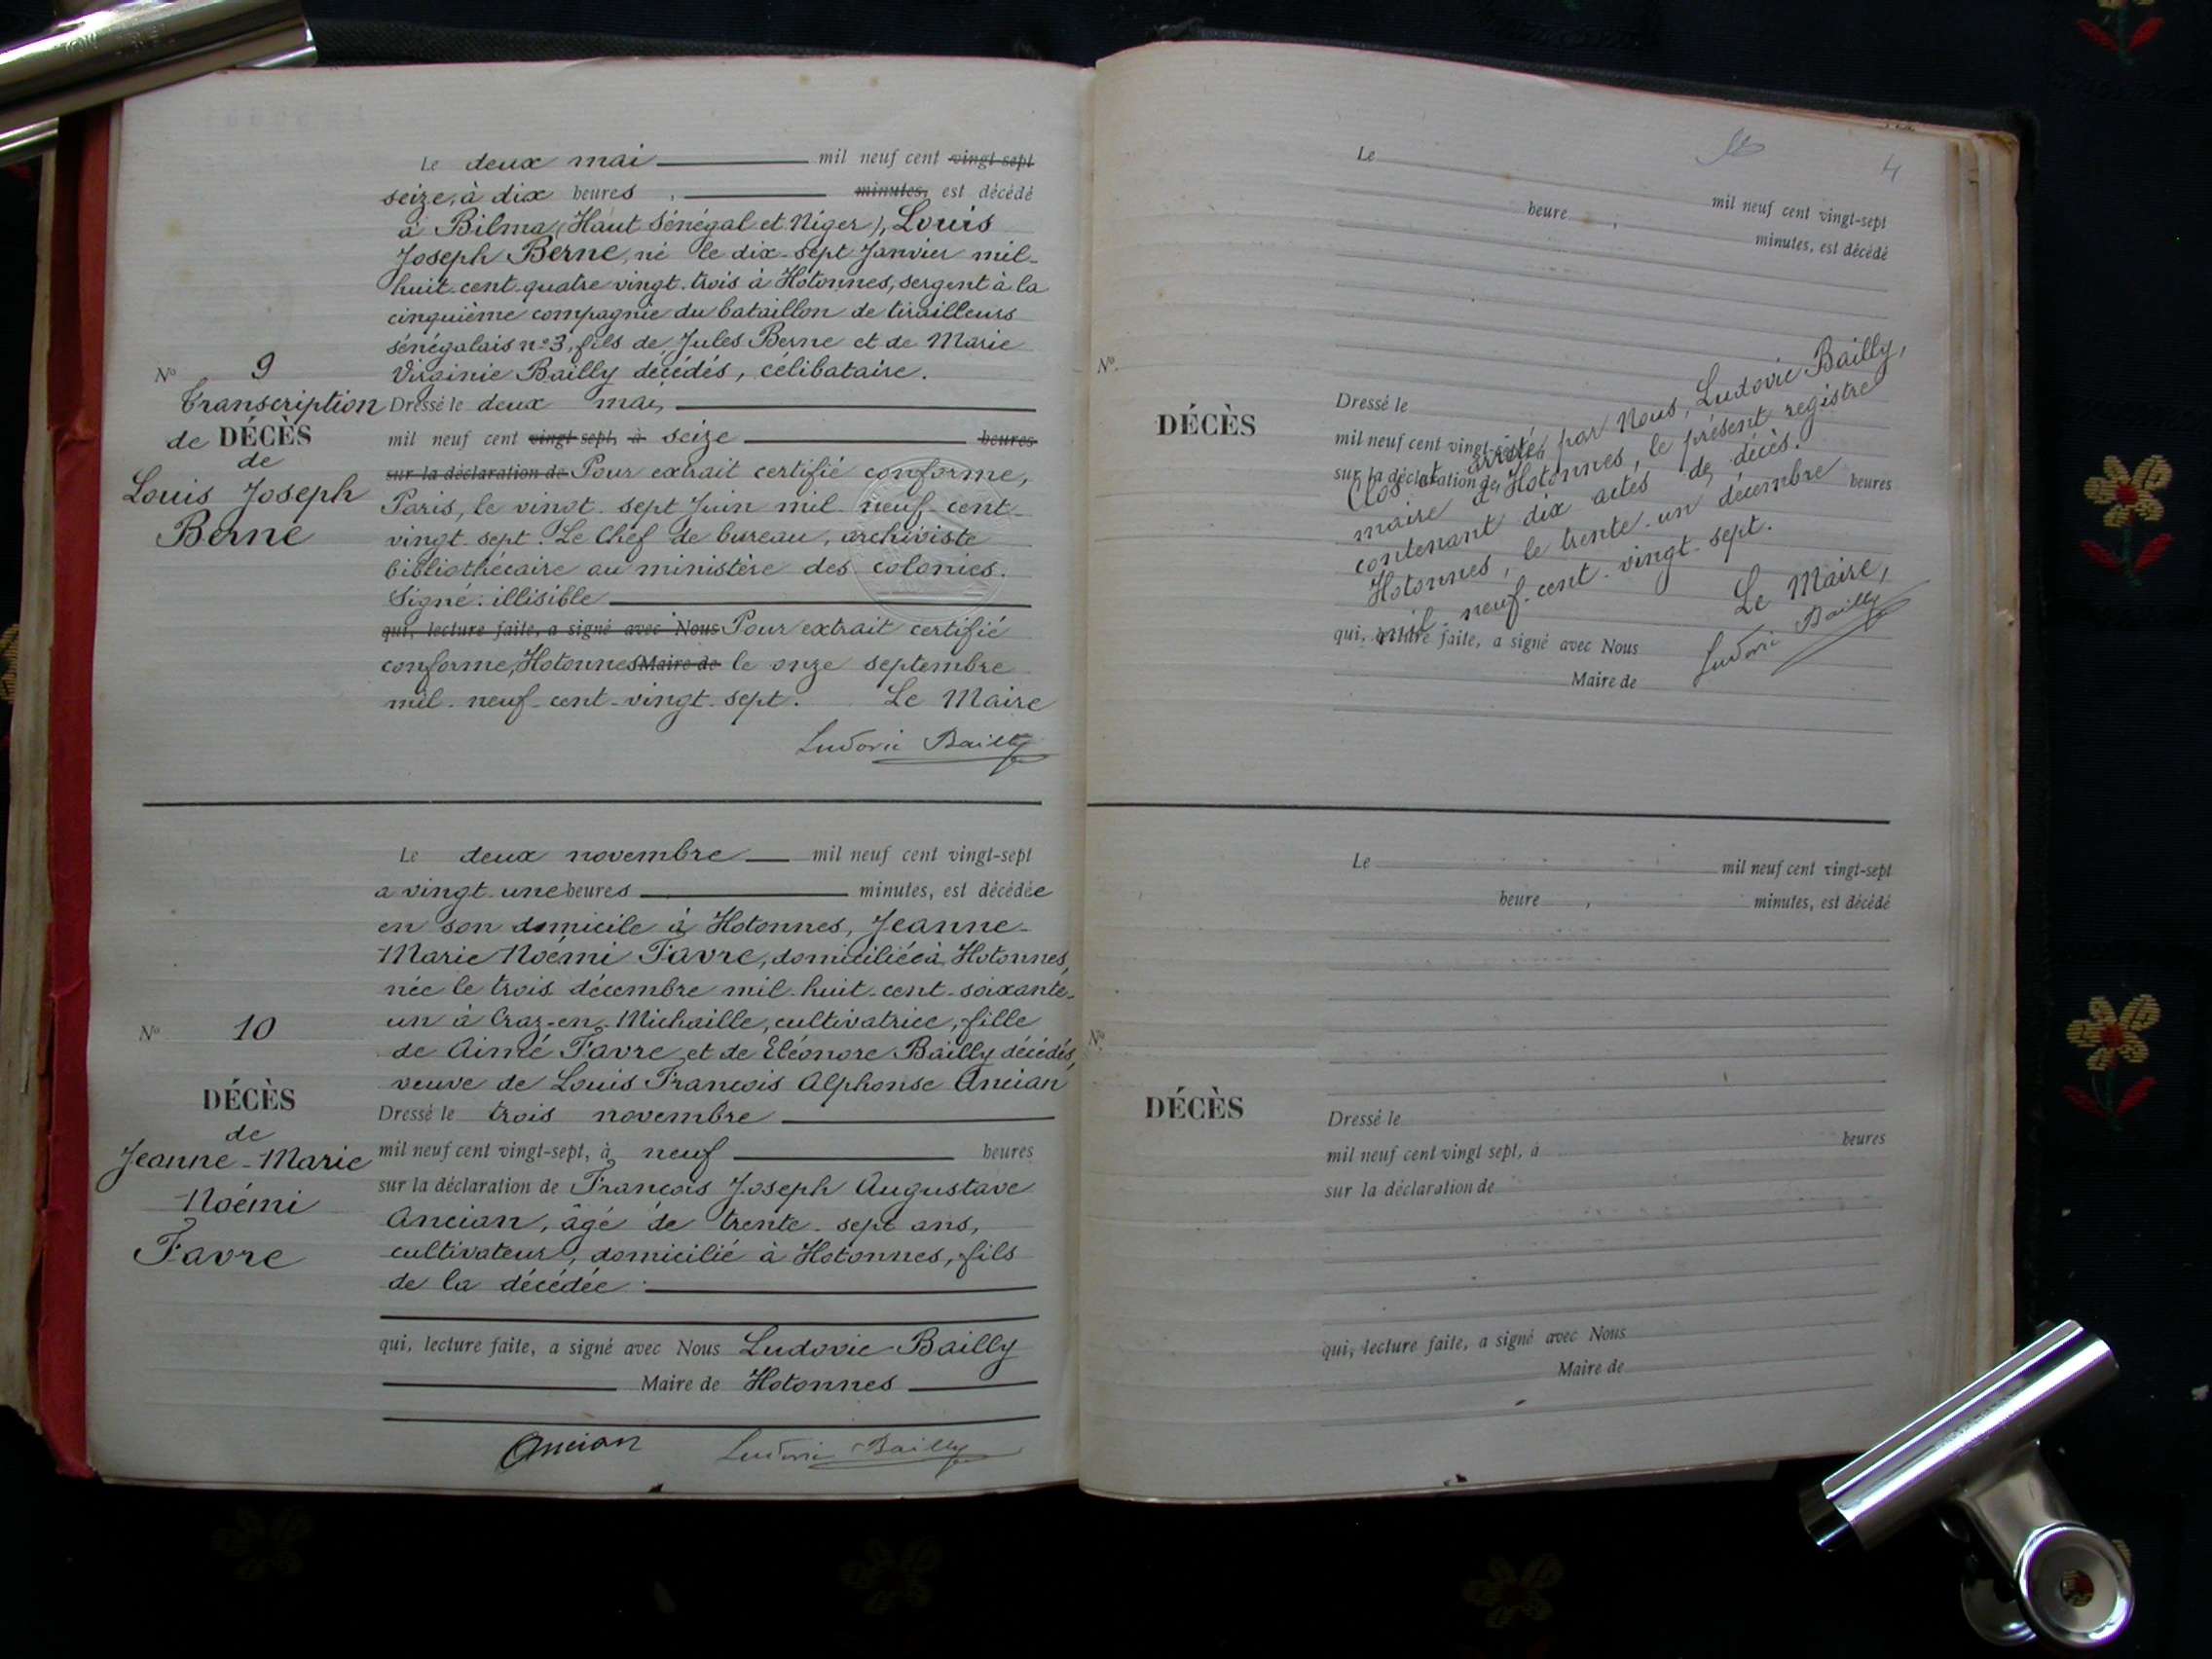 Le deux mai mil neuf cent vingt-sept
seize, à dix heures , minutes, est décédé
à Bilma (Haut Sénégal et Niger), Louis
Joseph Berne, né le dix-sept Janvier mil-
huit-cent-quatre vingt-trois à Hotonnes, sergent à la
cinquième compagnie du bataillon de tirailleurs
sénégalais n°3, fils de Jules Berne et de Marie
Virginie Bailly décédés, célibataire.
Dressé le deux mai,
mil neuf cent vingt-sept, à seize heures
sur la déclaration de Pour extrait certifié conforme,
Paris, le vingt-sept Juin mil-neuf-cent-
vingt-sept. Le Chef de bureau, archiviste
bibliothécaire au ministère des colonies.
Signé : illisible
qui, lecture faite, a signé avec Nous Pour extrait certifié
conforme, Hotonnes Maire de le onze septembre
mil-neuf-cent-vingt-sept. Le Maire
Ludovic Bailly
N° 9
Transcription
de DÉCÈS
de
Louis Joseph
Berne
Le deux novembre mil neuf cent vingt-sept
a vingt-une heures minutes, est décédée
en son domicile à Hotonnes, Jeanne-
Marie Noémi Favre, domiciliée à Hotonnes,
née le trois décembre mil-huit-cent-soixante-
un à Craz-en-Michaille, cultivatrice, fille
de Aimé Favre et de Eléonore Bailly décédés,
veuve de Louis François Alphonse Ancian
Dressé le trois novembre
mil neuf cent vingt-sept, à neuf heures
sur la déclaration de François Joseph Augustave
Ancian, âgé de trente-sept ans,
cultivateur, domicilié à Hotonnes, fils
de la décédée.
qui, lecture faite, a signé avec Nous Ludovic Bailly
Maire de Hotonnes
Ancian Ludovic Bailly
N° 10
DÉCÈS
de
Jeanne-Marie
Noémi
Favre
4
Le mil neuf cent vingt-sept
heure , minutes, est décédé
N°
DÉCÈS
Dressé le
mil neuf cent vingt-sept, à heures
sur la déclaration de
Clos et arrêté par Nous, Ludovic Bailly,
maire de Hotonnes, le présent registre
contenant dix actes de décès.
Hotonnes, le trente-un décembre
mil-neuf-cent-vingt-sept.
Le Maire,
Ludovic Bailly
qui, lecture faite, a signé avec Nous
Maire de
Le mil neuf cent vingt-sept
heure , minutes, est décédé
N°
DÉCÈS
Dressé le
mil neuf cent vingt sept, à heures
sur la déclaration de
qui, lecture faite, a signé avec Nous
Maire de